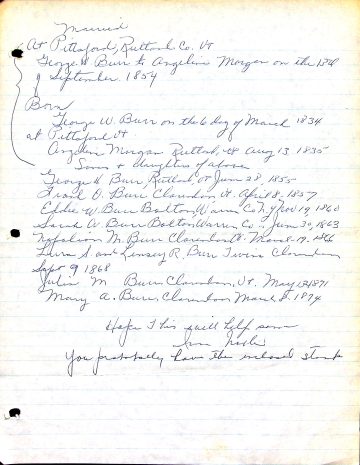 Married
At Pittsford, Rutland Co. Vt
George W Burr to Angeline Morgan on the
of September 1854
Born
George W. Burr on the 6 day of March 1834
at Pittsford Vt.
Morgan Rutland, Aug 13, 1835
Sons & daughters of above
George H Burr, Rutland, Vt June 28, 1855
D. Burr Clarendon Vt. April 8, 1857
Eddie W. Burr Bolton, Warren Co. N.Y Nov 19, 1860
Sarah A. Burr Bolton Warren Co. June 30, 1863
Napoleon M. Burr Clarendon Vt. March 17, 1866
S. and R. Burr Twins Clarendon
Sept 9 1868
Julia M Burr Clarendon, Vt. May 1871
Mary A. Burr, Clarendon March 8, 1874
Hope This will help some
You probably have the inclosed